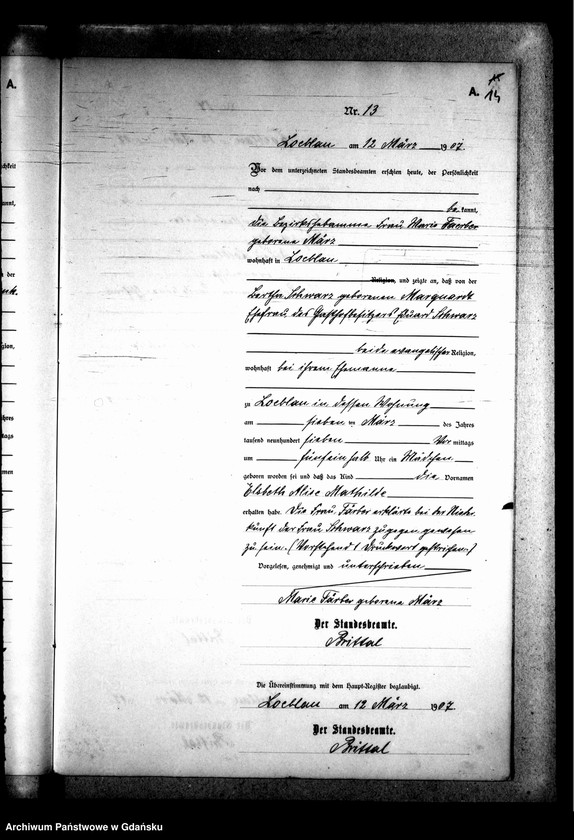 A.
A. 14
Nr. 13
Loeblau am 12 März 1907.
Vor dem unterzeichneten Standesbeamten erschien heute, der Persönlichkeit
nach
be kannt,
die Bezirkshebamme Frau Marie Faerber
geborene März
wohnhaft in Loeblau
Religion, und zeigte an, daß von der
Bertha Schwarz geborenen Marquardt
Ehefrau des Gasthofbesitzers Eduard Schwarz
beide evangelischer Religion,
wohnhaft bei ihrem Ehemanne
zu Loeblau in dessen Wohnung
am sieben ten März des Jahres
tausend neunhundert sieben Vor mittags
um fünfeinhalb Uhr ein Mädchen
geboren worden sei und daß das Kind die Vornamen
Elsbeth Alise Mathilde
erhalten habe. Die Frau Färber erklärte bei der Nieder
kunft der Frau Schwarz zugegen gewesen
zu sein. (Vorstehend 1 Druckwort gestrichen.)
Vorgelesen, genehmigt und unterschrieben
Marie Färber geborene März
Der Standesbeamte.
Brittal
Die Übereinstimmung mit dem Haupt-Register beglaubigt.
Loeblau am 12 März 1907
Der Standesbeamte.
Brittal
Archiwum Państwowe w Gdańsku